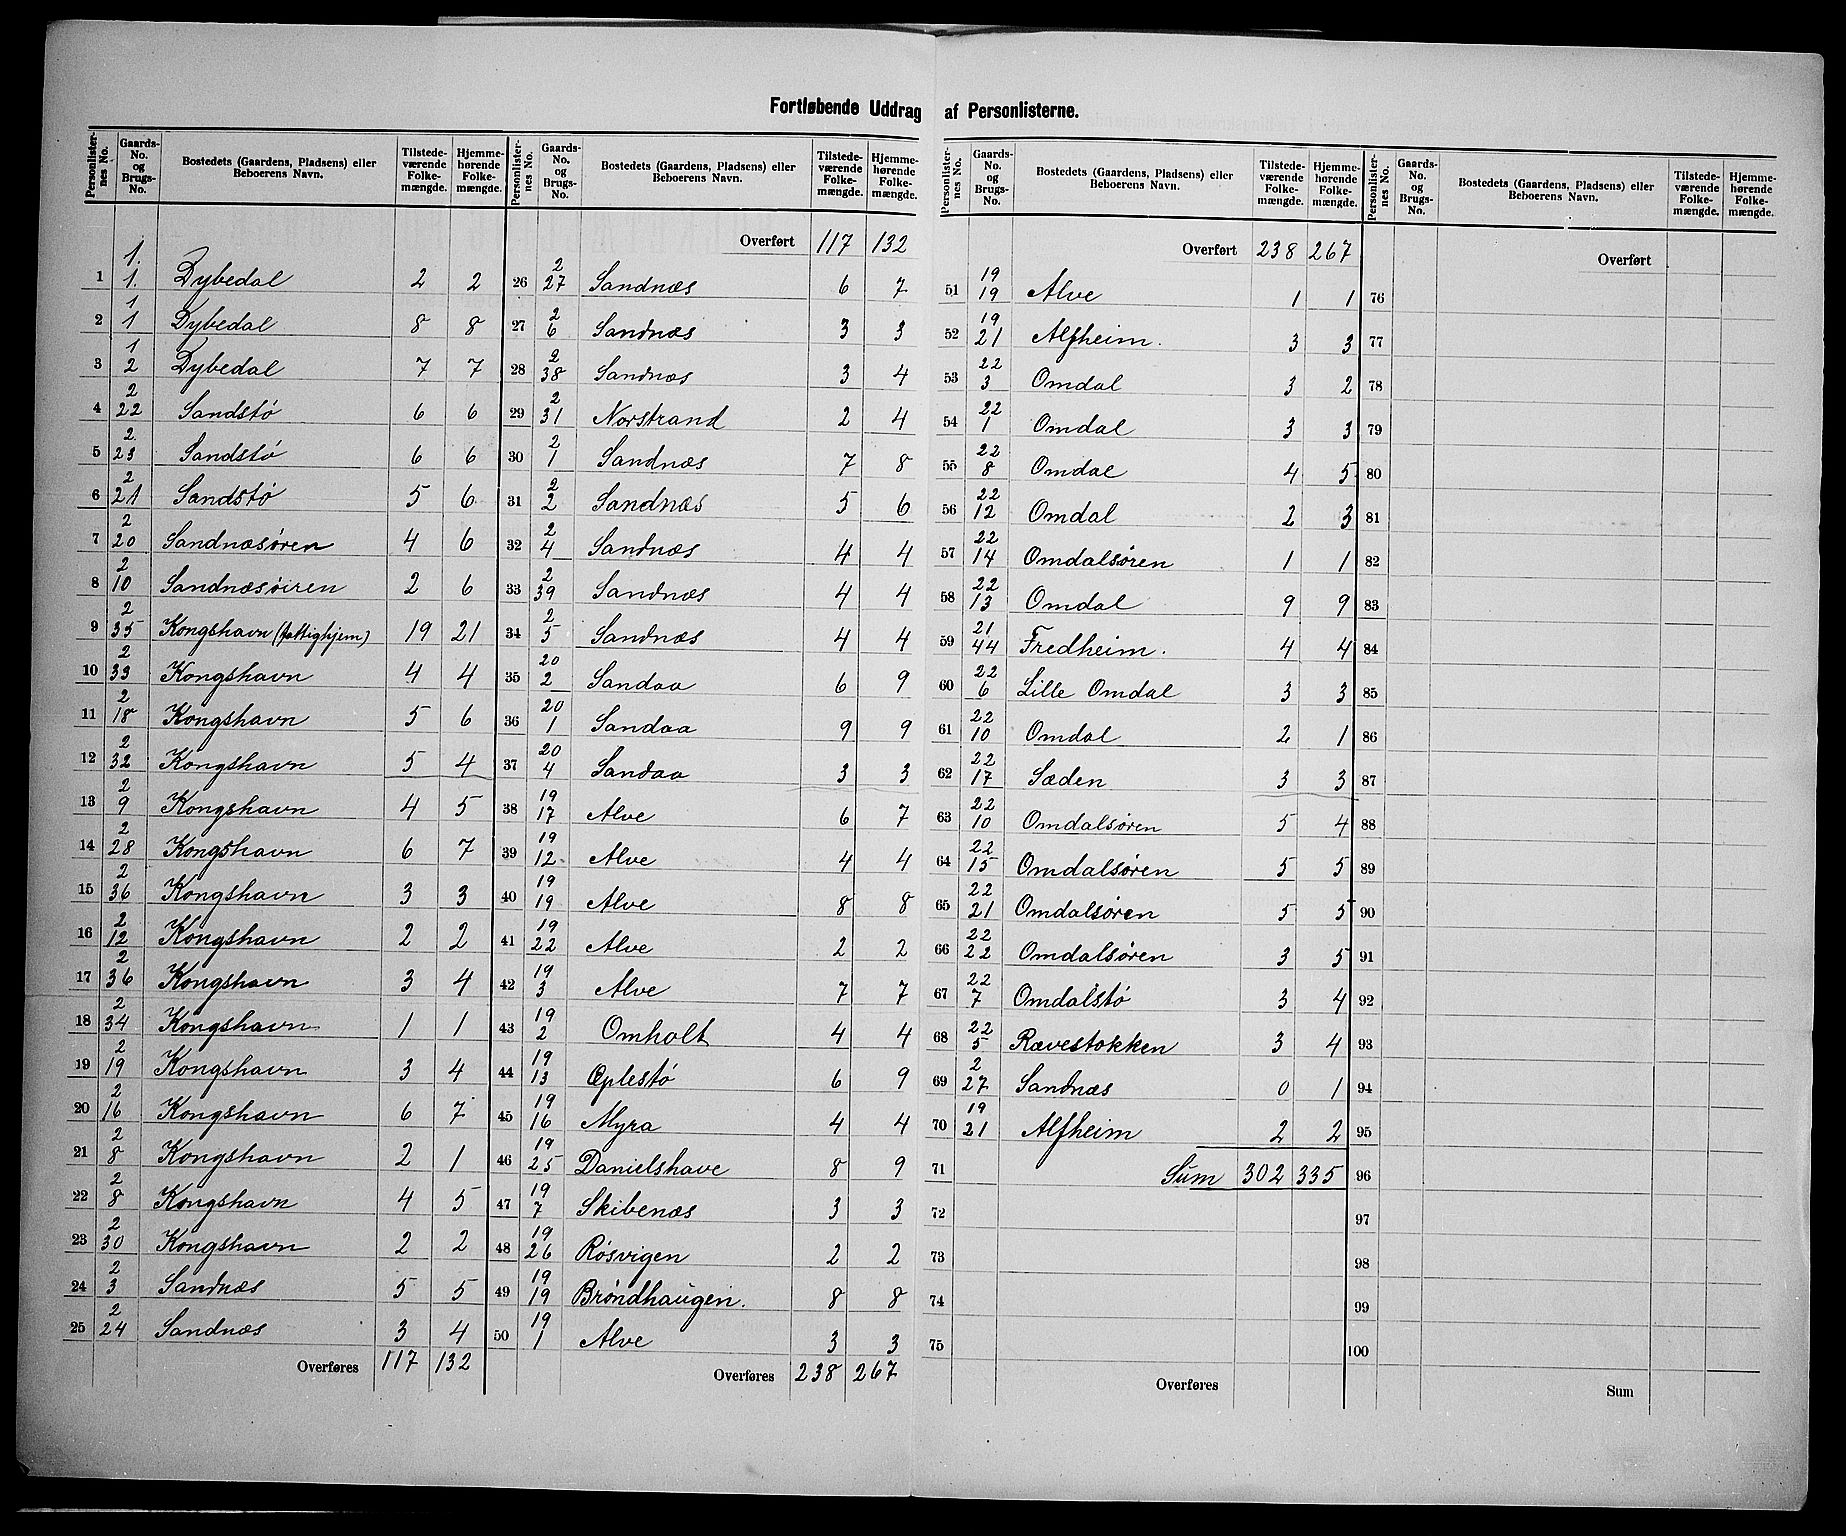 Fortløbende Uddrag af Personlisterne.
Personlister-nes No. | Gaards-No. og Brugs-No. | Bostedets (Gaardens, Pladsens) eller Beboerens Navn. | Tilstede-værende Folke-mængde. | Hjemme-hørende Folke-mængde.
1 | 1. 1. | Dybedal | 2 | 2
2 | 1 1 | Dybedal | 8 | 8
3 | 1 2 | Dybedal | 7 | 7
4 | 2 22 | Sandstø | 6 | 6
5 | 2. 23 | Sandstø | 6 | 6
6 | 2 21 | Sandstø | 5 | 6
7 | 2 20 | Sandnæsøren | 4 | 6
8 | 2 10 | Sandnæsøiren | 2 | 6
9 | 2 35 | Kongshavn (fattighjem) | 19 | 21
10 | 2 33 | Kongshavn | 4 | 4
11 | 2 18 | Kongshavn | 5 | 6
12 | 2 32 | Kongshavn | 5 | 4
13 | 2 9 | Kongshavn | 4 | 5
14 | 2 28 | Kongshavn | 6 | 7
15 | 2 36 | Kongshavn | 3 | 3
16 | 2 12 | Kongshavn | 2 | 2
17 | 2 36 | Kongshavn | 3 | 4
18 | 2 34 | Kongshavn | 1 | 1
19 | 2 19 | Kongshavn | 3 | 4
20 | 2 16 | Kongshavn | 6 | 7
21 | 2 8 | Kongshavn | 2 | 1
22 | 2 8 | Kongshavn | 4 | 5
23 | 2 30 | Kongshavn | 2 | 2
24 | 2 3 | Sandnæs | 5 | 5
25 | 2 24 | Sandnæs | 3 | 4
Overføres | 117 | 132
Personlister-nes No. | Gaards-No. og Brugs-No. | Bostedets (Gaardens, Pladsens) eller Beboerens Navn. | Tilstede-værende Folke-mængde. | Hjemme-hørende Folke-mængde.
Overført | 117 | 132
26 | 2 27 | Sandnæs | 6 | 7
27 | 2 6 | Sandnæs | 3 | 3
28 | 2 38 | Sandnæs | 3 | 4
29 | 2 31 | Norstrand | 2 | 4
30 | 2 1 | Sandnæs | 7 | 8
31 | 2 2 | Sandnæs | 5 | 6
32 | 2 4 | Sandnæs | 4 | 4
33 | 2 39 | Sandnæs | 4 | 4
34 | 2 5 | Sandnæs | 4 | 4
35 | 20 2 | Sandaa | 6 | 9
36 | 20 1 | Sandaa | 9 | 9
37 | 20 4 | Sandaa | 3 | 3
38 | 19 17 | Alve | 6 | 7
39 | 19 12 | Alve | 4 | 4
40 | 19 19 | Alve | 8 | 8
41 | 19 22 | Alve | 2 | 2
42 | 19 3 | Alve | 7 | 7
43 | 19 2 | Omholt | 4 | 4
44 | 19 13 | Eplestø | 6 | 9
45 | 19 16 | Myra | 4 | 4
46 | 19 25 | Danielshave | 8 | 9
47 | 19 7 | Skibenæs | 3 | 3
48 | 19 26 | Røsvigen | 2 | 2
49 | 19 19 | Brøndhaugen. | 8 | 8
50 | 19 1 | Alve | 3 | 3
Overføres | 238 | 267
Personlister-nes No. | Gaards-No. og Brugs-No. | Bostedets (Gaardens, Pladsens) eller Beboerens Navn. | Tilstede-værende Folke-mængde. | Hjemme-hørende Folke-mængde.
Overført | 238 | 267
51 | 19 19 | Alve | 1 | 1
52 | 19 21 | Alfheim. | 3 | 3
53 | 22 3 | Omdal | 3 | 2
54 | 22 1 | Omdal | 3 | 3
55 | 22 8 | Omdal | 4 | 5
56 | 22 12 | Omdal | 2 | 3
57 | 22 14 | Omdalsøren | 1 | 1
58 | 22 13 | Omdal | 9 | 9
59 | 21 44 | Fredheim. | 4 | 4
60 | 22 6 | Lille Omdal | 3 | 3
61 | 22 10 | Omdal | 2 | 1
62 | 22 17 | Sæden | 3 | 3
63 | 22 10 | Omdalsøren | 5 | 4
64 | 22 15 | Omdalsøren | 5 | 5
65 | 22 21 | Omdalsøren | 5 | 5
66 | 22 22 | Omdalsøren | 3 | 5
67 | 22 7 | Omdalstø | 3 | 4
68 | 22 5 | Rævestokken | 3 | 4
69 | 2 27 | Sandnæs | 0 | 1
70 | 19 21 | Alfheim | 2 | 2
71 | Sum | 302 | 335
72
73
74
75
Overføres
Personlister-nes No. | Gaards-No. og Brugs-No. | Bostedets (Gaardens, Pladsens) eller Beboerens Navn. | Tilstede-værende Folke-mængde. | Hjemme-hørende Folke-mængde.
Overført
76
77
78
79
80
81
82
83
84
85
86
87
88
89
90
91
92
93
94
95
96
97
98
99
100
Sum